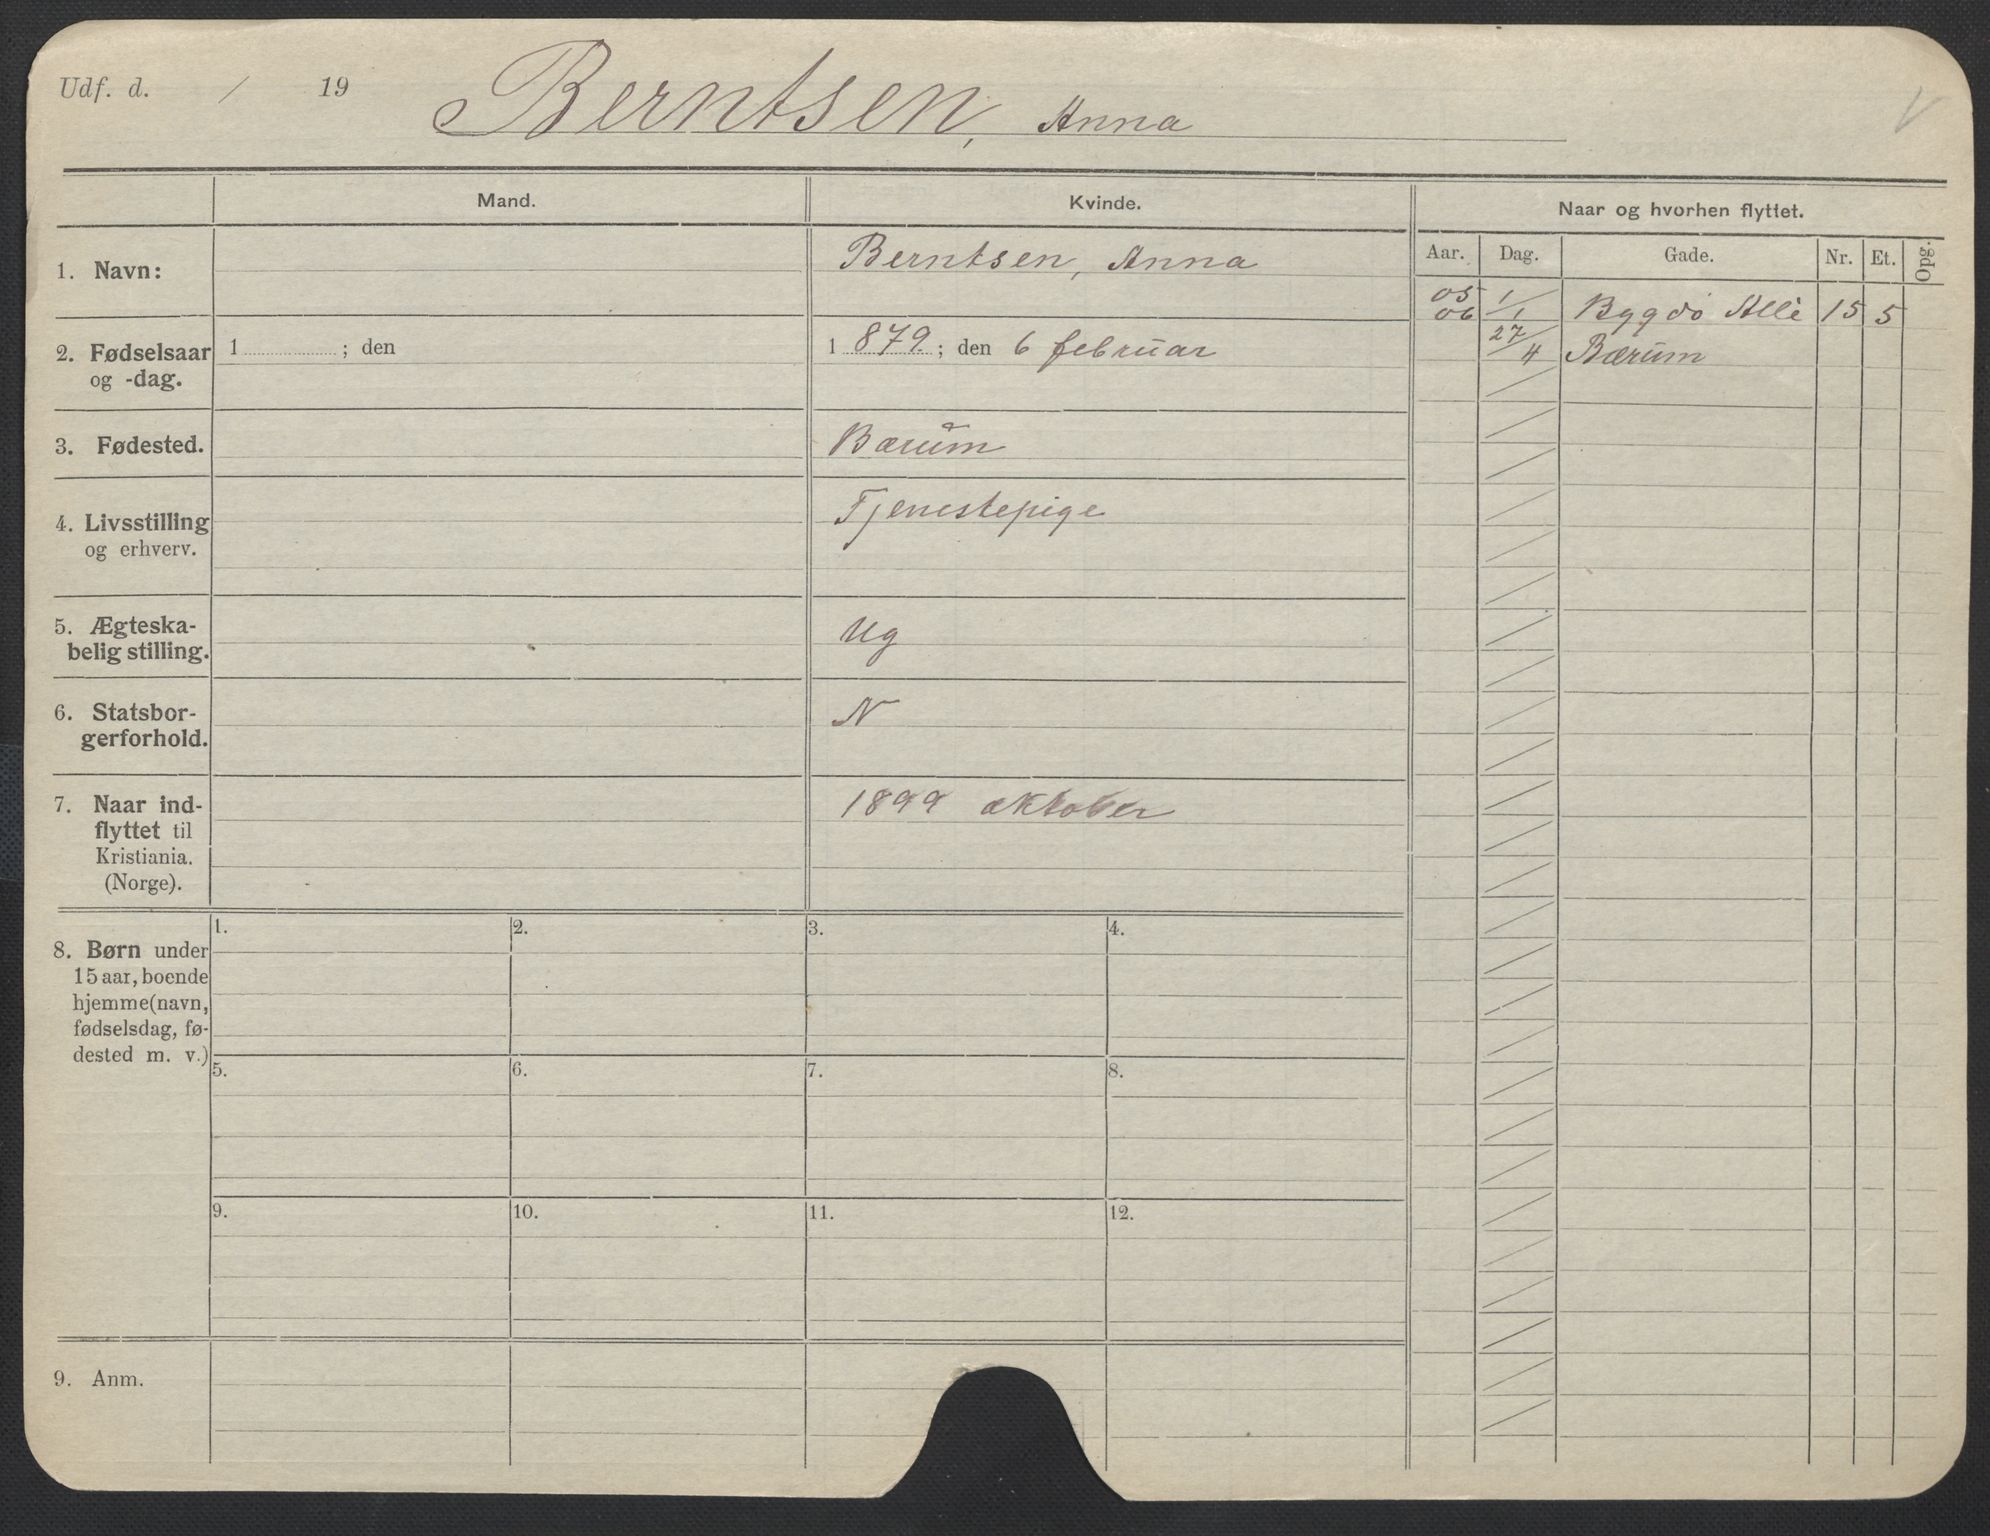 Udf. d. / 19 Berntsen, Anna
Mand. Kvinde. Naar og hvorhen flyttet.
Aar. Dag. Gade. Nr. Et. Opg.
1. Navn: Berntsen, Anna
05 1/1 Bygdö Allè 15 5
06 27/4 Bærum
2. Fødselsaar
og -dag.
1 ; den
1 879. ; den 6 februar
3. Fødested. Bærum
4. Livsstilling
og erhverv.
Tjenestepige
5. Ægteska-
belig stilling.
Ug
6. Statsbor-
gerforhold.
N
7. Naar ind-
flyttet til
Kristiania.
(Norge).
1899 oktober
8. Børn under
15 aar, boende
hjemme (navn,
fødselsdag, fø-
dested m. v.)
1. 2. 3. 4.
5. 6. 7. 8.
9. 10. 11. 12.
9. Anm.